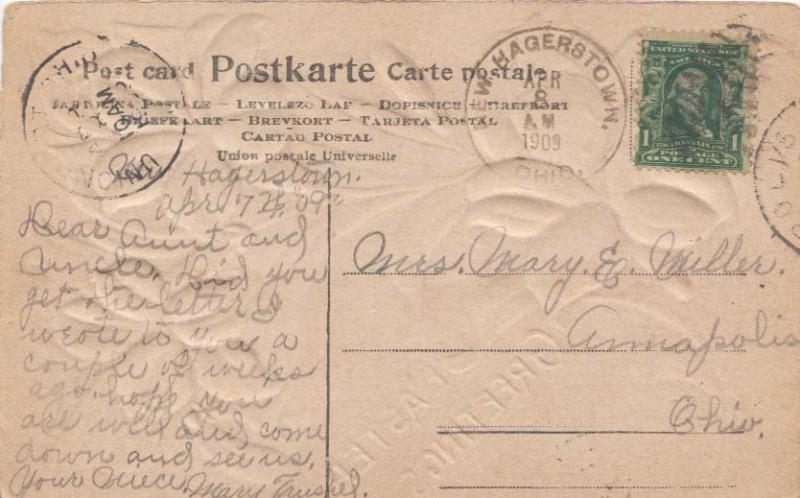 Post card Postkarte Carte postale
LEVELEZO LAP – DOPISNICE – BREFKORT
BRIEFKAART – BREVKORT – TARJETA POSTAL
CARTAO POSTAL
Union postale Universelle
NEW HAGERSTOWN.
APR
8
AM
1909
OHIO.
UNITED STATES OF
AMERICA
1 FRANKLIN 1
POSTAGE
ONE CENT
Hagerstown.
Apr 7th, 09.
Dear Aunt and
Uncle, Did you
get the letter I
wrote to you a
couple of weeks
ago. hope you
are well and come
down and see us.
Your Niece, Mary
Mrs. Mary E. Miller.
Annapolis
Ohio.
EASTER
GREETINGS